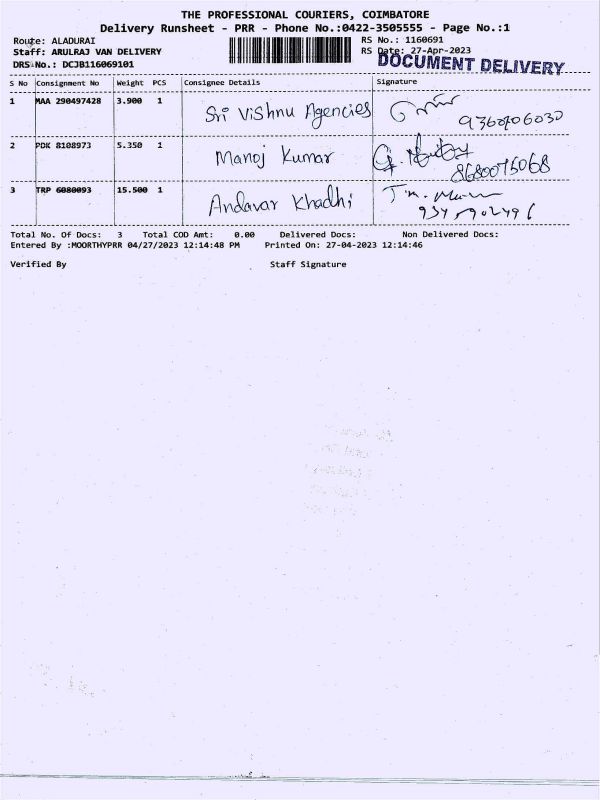 THE PROFESSIONAL COURIERS, COIMBATORE
Delivery Runsheet - PRR - Phone No.:0422-3505555 - Page No.:1
Route: ALADURAI RS No.: 1160691
Staff: ARULRAJ VAN DELIVERY RS Date: 27-Apr-2023
DRS No.: DCJB116069101 DOCUMENT DELIVERY
S No Consignment No Weight PCS Consignee Details Signature
1 MAA 290497428 3.900 1 Sri Vishnu Agencies
2 PDK 8108973 5.350 1 Manoj Kumar
8680075068
3 TRP 6080093 15.500 1 Andavar Khadhi
Total No. Of Docs: 3 Total COD Amt: 0.00 Delivered Docs: Non Delivered Docs:
Entered By :MOORTHYPRR 04/27/2023 12:14:48 PM Printed On: 27-04-2023 12:14:46
Verified By Staff Signature